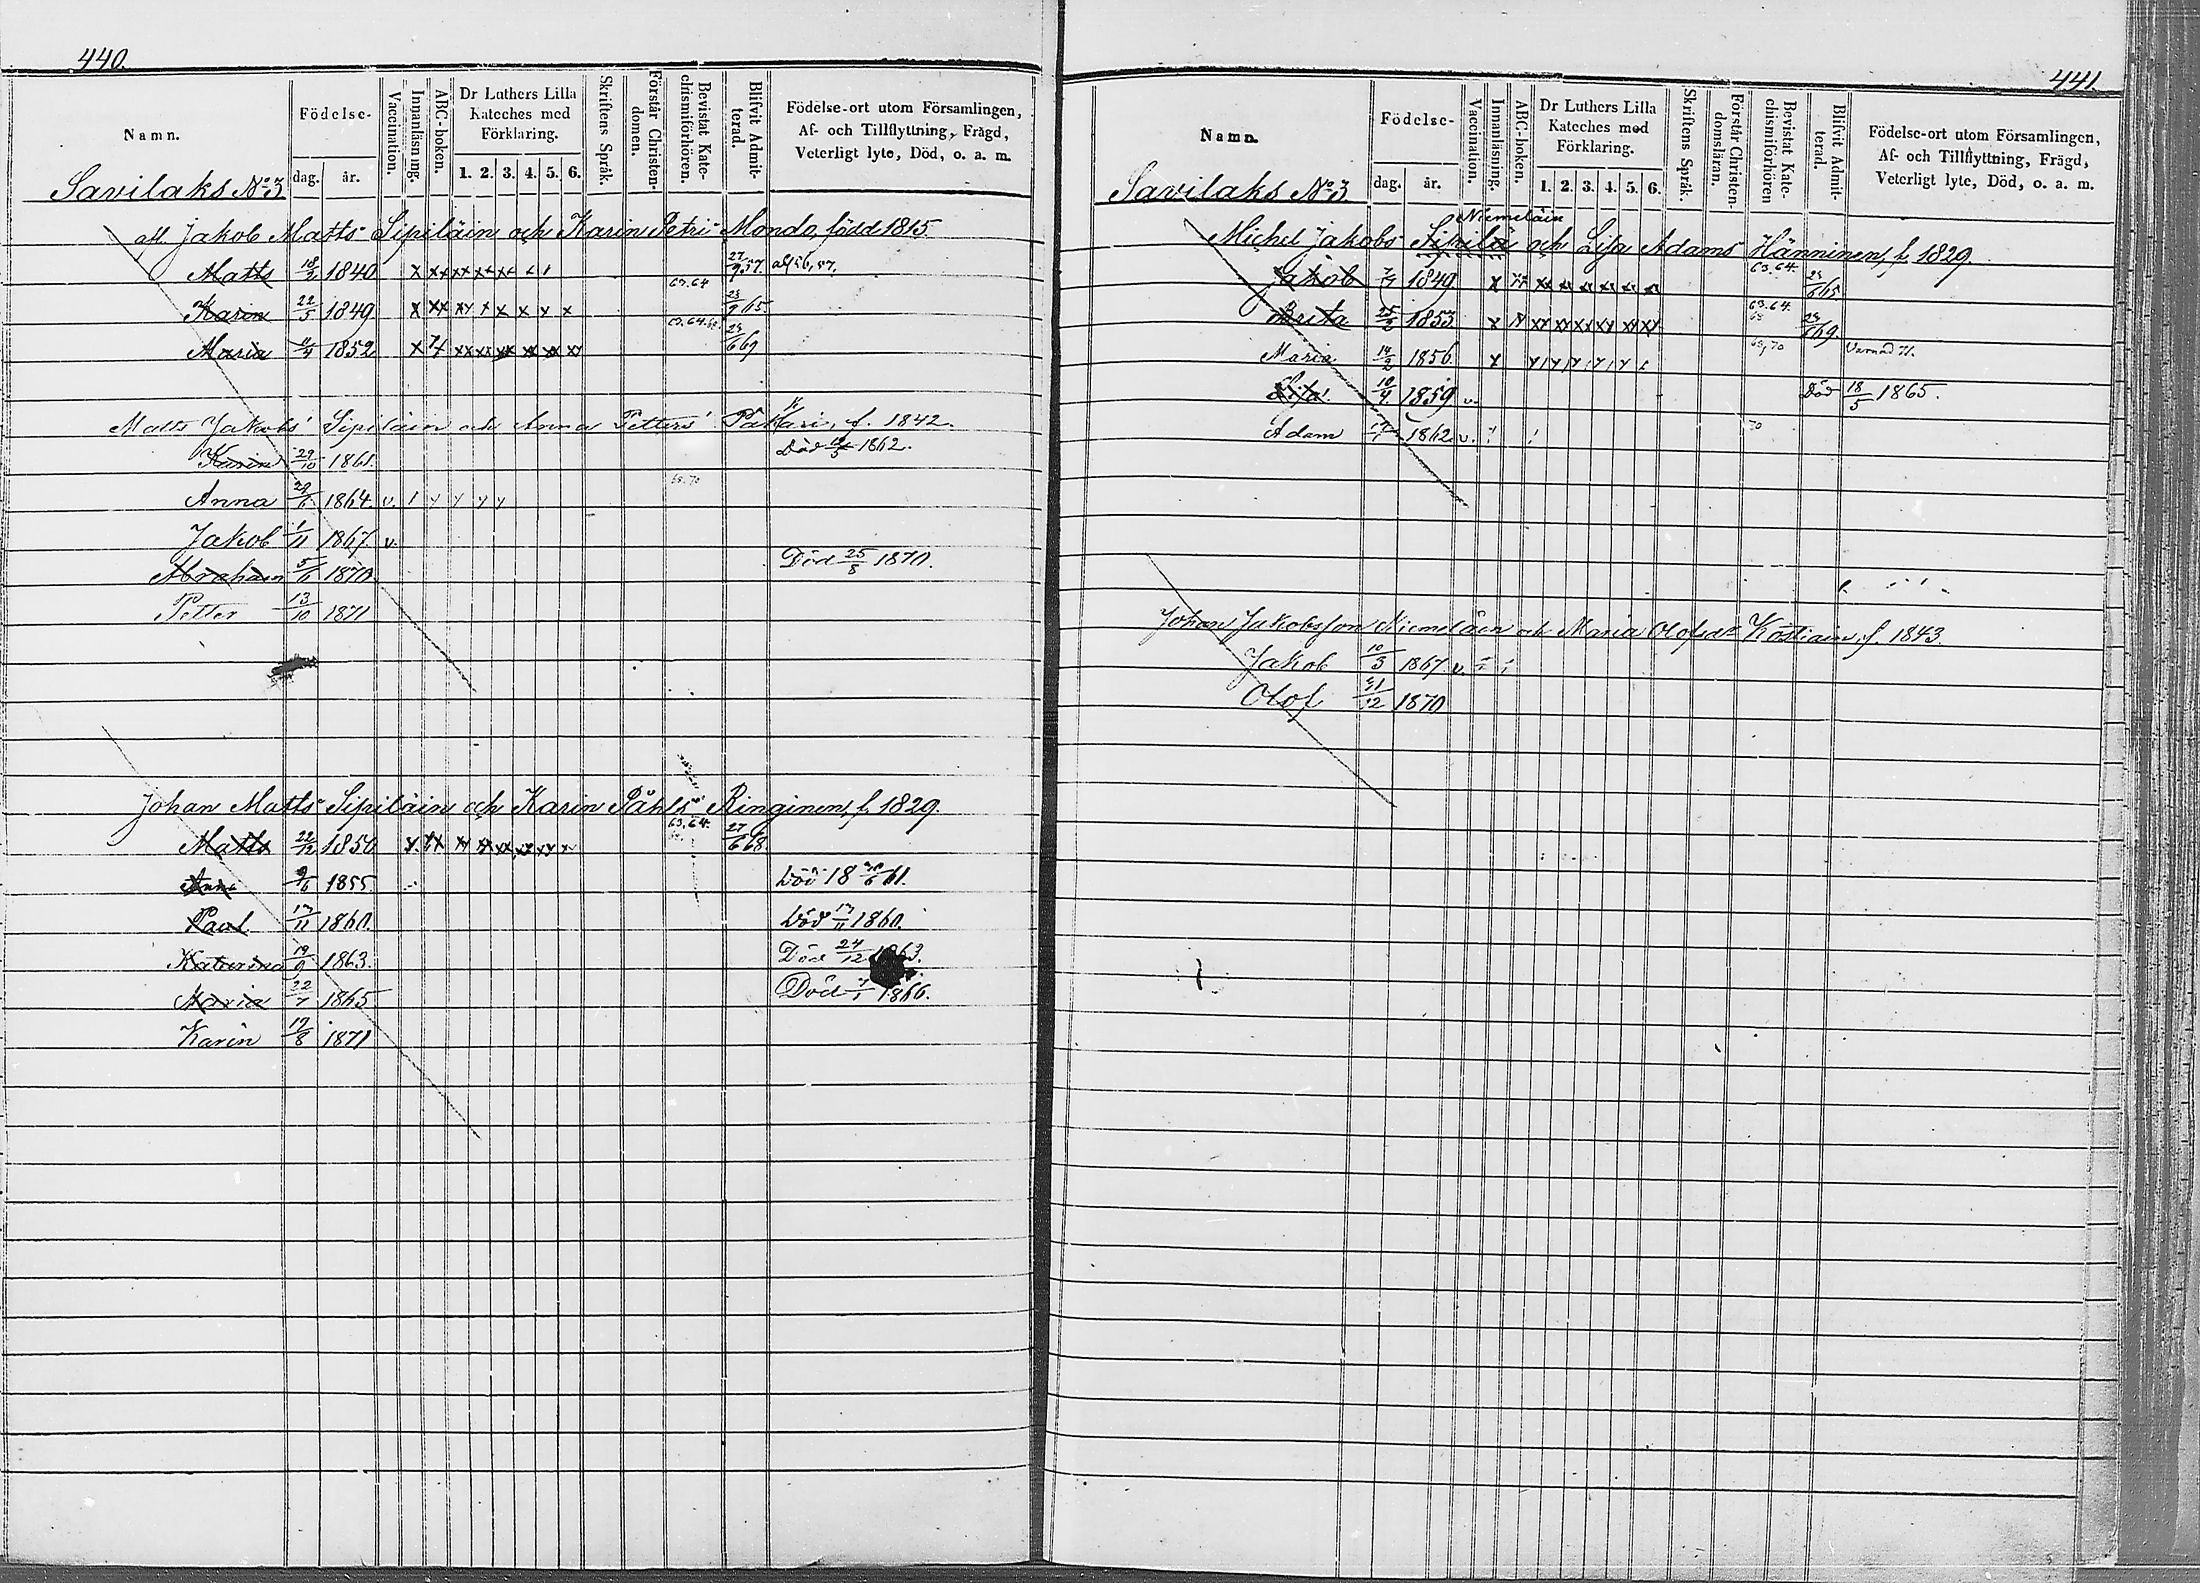 440.
Namn.
Födelse-
dag. år.
Vaccination.
Innanläsning.
ABC-boken.
Dr Luthers Lilla
Kateches med
Förklaring.
1. 2. 3. 4. 5. 6.
Skriftens Språk.
Förstår Christen-
domen.
Bevistat Kate-
chismiförhören.
Blifvit Admit-
terad.
Födelse-ort utom Församlingen,
Af- och Tillflyttning, Frägd,
Veterligt lyte, Död, o. a. m.
Savilaks No 3
afl. Jakob Matts Sipiläin och Karin Petri Mondo, född 1815.
Matts 18/2 1840 27/9 57. 56, 57.
Karin 22/5 1849 63.64 9 65.
Maria 1852 63.64. 6 69
Matts Jakobs Sipiläin och Anna Petters Päkkari, f. 1842.
Karin 29/10 1861. Död 1862.
Anna 29/6 1864. v. 70
Jakob 1/11 1867. v.
Abraham 5/6 1870 Död 25/8 1870.
Petter 13/10 1871
Johan Matts Sipiläin och Karin Påhls Ringinen, f. 1829.
Matts 22/12 1850 63.64. 27/6 68
Anna 9/6 1855 Död 18 61.
Paul 17/11 1860. Död 17/11 1860.
Katarina 19/9 1863. Död 24/12 1863.
Maria 22/7 1865 Död 1866.
Karin 17/8 1871
441.
Namn.
Födelse-
dag. år.
Vaccination.
Innanläsning.
ABC-boken.
Dr Luthers Lilla
Kateches med
Förklaring.
1. 2. 3. 4. 5. 6.
Skriftens Språk.
Förstår Christen-
domsläran.
Bevistat Kate-
chismiförhören
Blifvit Admit-
terad.
Födelse-ort utom Församlingen,
Af- och Tillflyttning, Frägd,
Veterligt lyte, Död, o. a. m.
Savilaks No 3
Niemeläin
Michel Jakobs Sipilä och Lisa Adams Hänninen, f. 1829.
Jakob 1849 63.64. 6 65
Brita 25/3 1853 63.64. 69.
Maria 14/2 1856. 70
Lisa 10/4 1859 v. Död 18/5 1865.
Adam 1862 v. 70
Johan Jakobsson Niemeläin och Maria Olofsdr Kostiain, f. 1843.
Jakob 10/3 1867. v.
Olof 31/12 1870